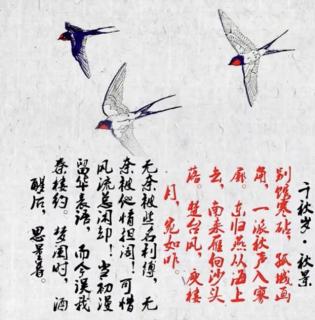 千秋岁·秋景
别馆寒砧，孤城画
角，一派秋声入寥
廓。东归燕从海上
去，南来雁向沙头
落。楚台风，庾楼
月，宛如昨。
无奈被些名利缚，无
奈被他情担阁！可惜
风流总闲却！当初漫
留华表语，而今误我
秦楼约。梦阑时，酒
醒后，思量着。